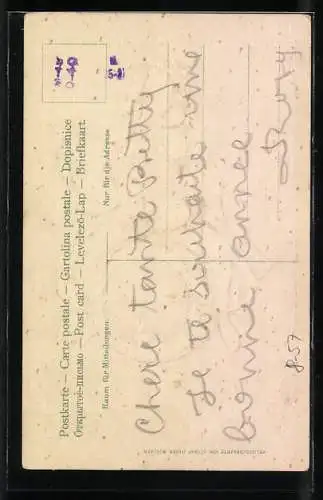 Postkarte — Carte postale — Cartolina postale — Dopisnice
Открытое-письмо — Post card — Levelező-Lap — Briefkaart
Raum für Mitteilungen.
Nur für die Adresse
Chere tante Pretty
Je te souhaite une
bonne année
8-57